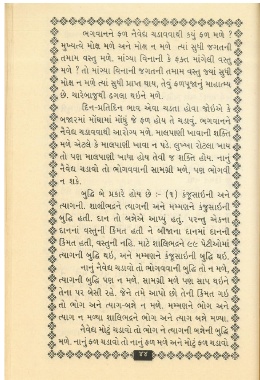 ભગવાનને ફળ નૈવેદ્ય ચડાવવાથી કયું ફળ મળે ?
મુખ્યત્વે મોક્ષ મળે અને મોક્ષ ન મળે ત્યાં સુધી જગતની
તમામ વસ્તુ મળે. માંગ્યા વિનાની કે ફક્ત માંગેલી વસ્તુ
મળે ? તો માંગ્યા વિનાની જગતની તમામ વસ્તુ જ્યાં સુધી
મોક્ષ ન મળે ત્યાં સુધી પ્રાપ્ત થાય, તેવું ફળપૂજાનું માહાત્મ્ય
છે. ચારેબાજુથી ઢગલા થઈને મળે.
દિન-પ્રતિદિન ભાવ એવા ચડતા હોવા જોઈએ કે
બજારમાં મોંઘામાં મોંઘું જે ફળ હોય તે ચડાવું. ભગવાનને
નૈવેદ્ય ચડાવવાથી આરોગ્ય મળે. માલપાણી ખાવાની શક્તિ
મળે એટલે કે માલપાણી ખાવા ન પડે. લુખ્ખા રોટલા ખાય
તો પણ માલપાણી ખાધા હોય તેવી જ શક્તિ હોય. નાનું
નૈવેદ્ય ચડાવો તો ભોગવવાની સામગ્રી મળે, પણ ભોગવી
ન શકે.
બુદ્ધિ બે પ્રકારે હોય છે :- (૧) કંજુસાઇની અને
ત્યાગની. શાલીભદ્રને ત્યાગની અને મમ્મણને કંજુસાઇની
બુદ્ધિ હતી. દાન તો બન્નેએ આપ્યું હતું. પરન્તુ એકના
દાનનાં વસ્તુની કિંમત હતી ને બીજાના દાનમાં દાનની
કિંમત હતી, વસ્તુની નહિ. માટે શાલિભદ્રને ૯૯ પેટીઓમાં
ત્યાગની બુદ્ધિ થઈ, અને મમ્મણને કંજૂસાઇની બુદ્ધિ થઈ.
નાનું નૈવેદ્ય ચડાવો તો ભોગવવાની બુદ્ધિ તો ન મળે,
ત્યાગની બુદ્ધિ પણ ન મળે. સામગ્રી મળે પણ સાપ થઈને
તેના પર બેસી રહે. જેને તમે આપો છો તેની કિંમત થઈ
તો ભોગ અને ત્યાગ-બન્ને ન મળે. મમ્મણને ભોગ અને
ત્યાગ ન મળ્યા શાલિભદ્રને ભોગ અને ત્યાગ બન્ને મળ્યા.
નૈવેદ્ય મોટું ચડાવો તો ભોગ ને ત્યાગની બન્નેની બુદ્ધિ
મળે. નાનું ફળ ચડાવો તો નાનું ફળ મળે અને મોટું ફળ ચડાવો
૪૪